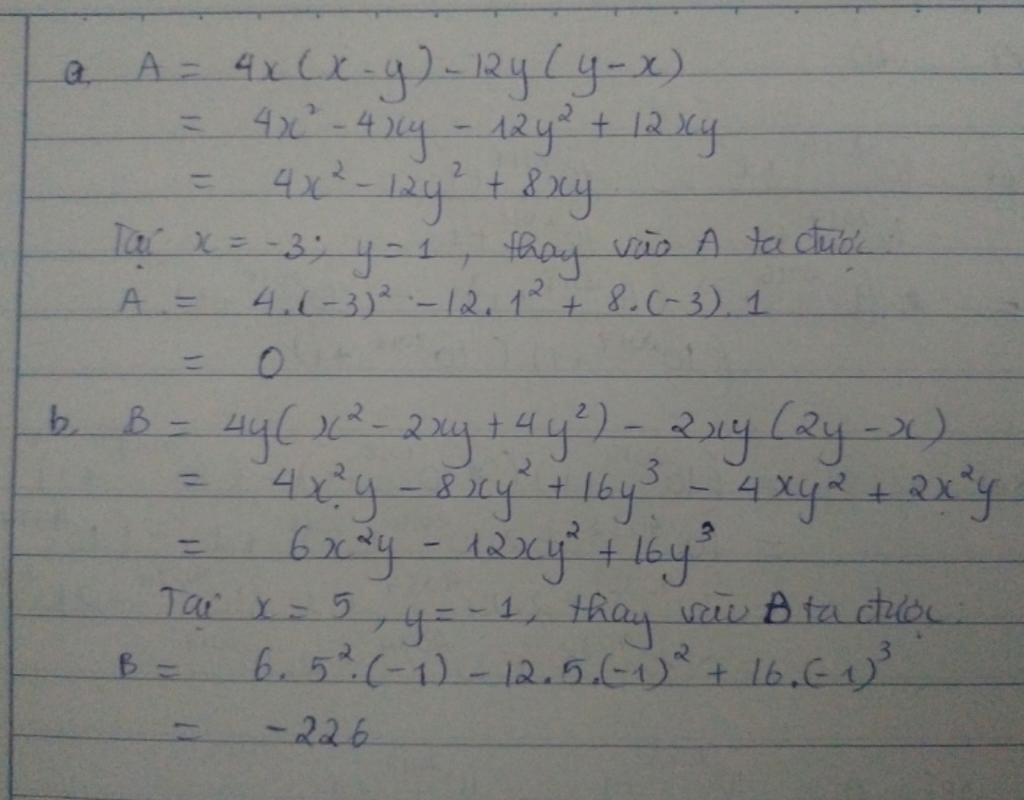 a, A = 4x(x-y) - 12y(y-x)
= 4x² - 4xy - 12y² + 12xy
= 4x² - 12y² + 8xy
Tại x = -3; y = 1, thay vào A ta được:
A = 4.(-3)² - 12.1² + 8.(-3).1
= 0
b, B = 4y(x² - 2xy + 4y²) - 2xy(2y - x)
= 4x²y - 8xy² + 16y³ - 4xy² + 2x²y
= 6x²y - 12xy² + 16y³
Tại x = 5, y = -1, thay vào B ta được:
B = 6.5².(-1) - 12.5.(-1)² + 16.(-1)³
= -226